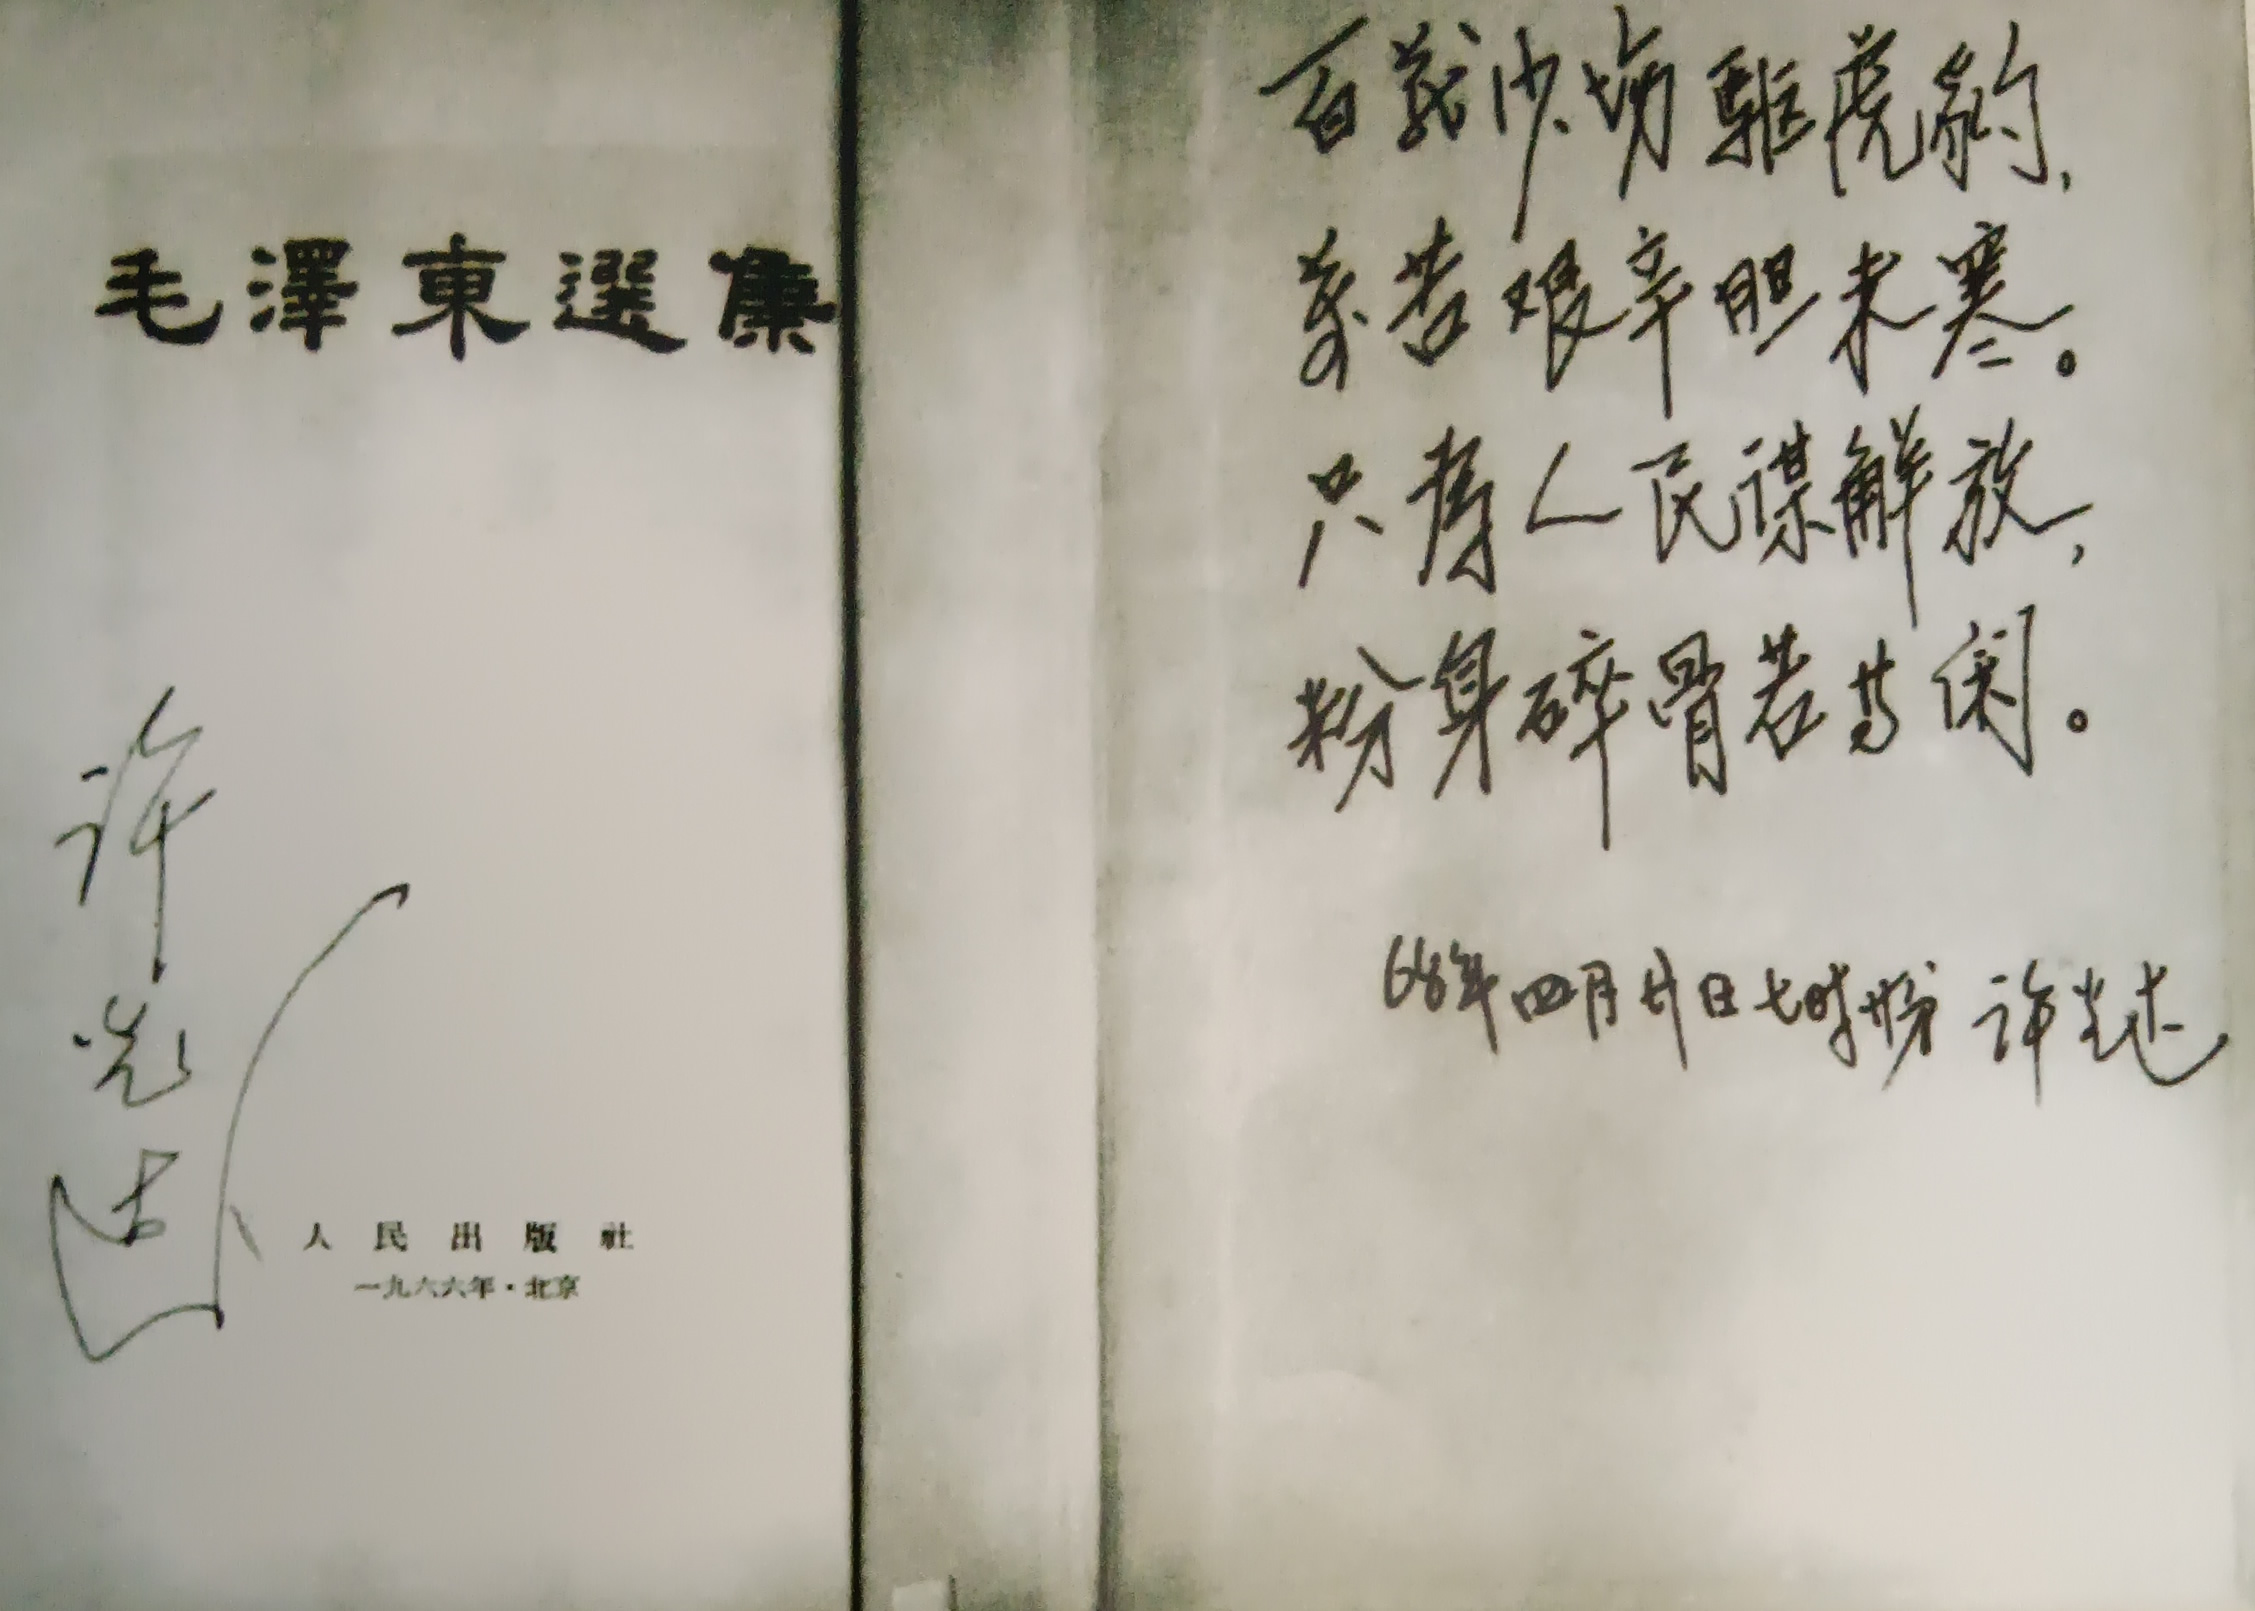 毛澤東選集
许光达
人民出版社
一九六六年·北京
百战沙场驱虎豹,
万苦艰辛胆未寒。
只为人民谋解放,
粉身碎骨若等闲。
68年四月廿日七时形 许光达